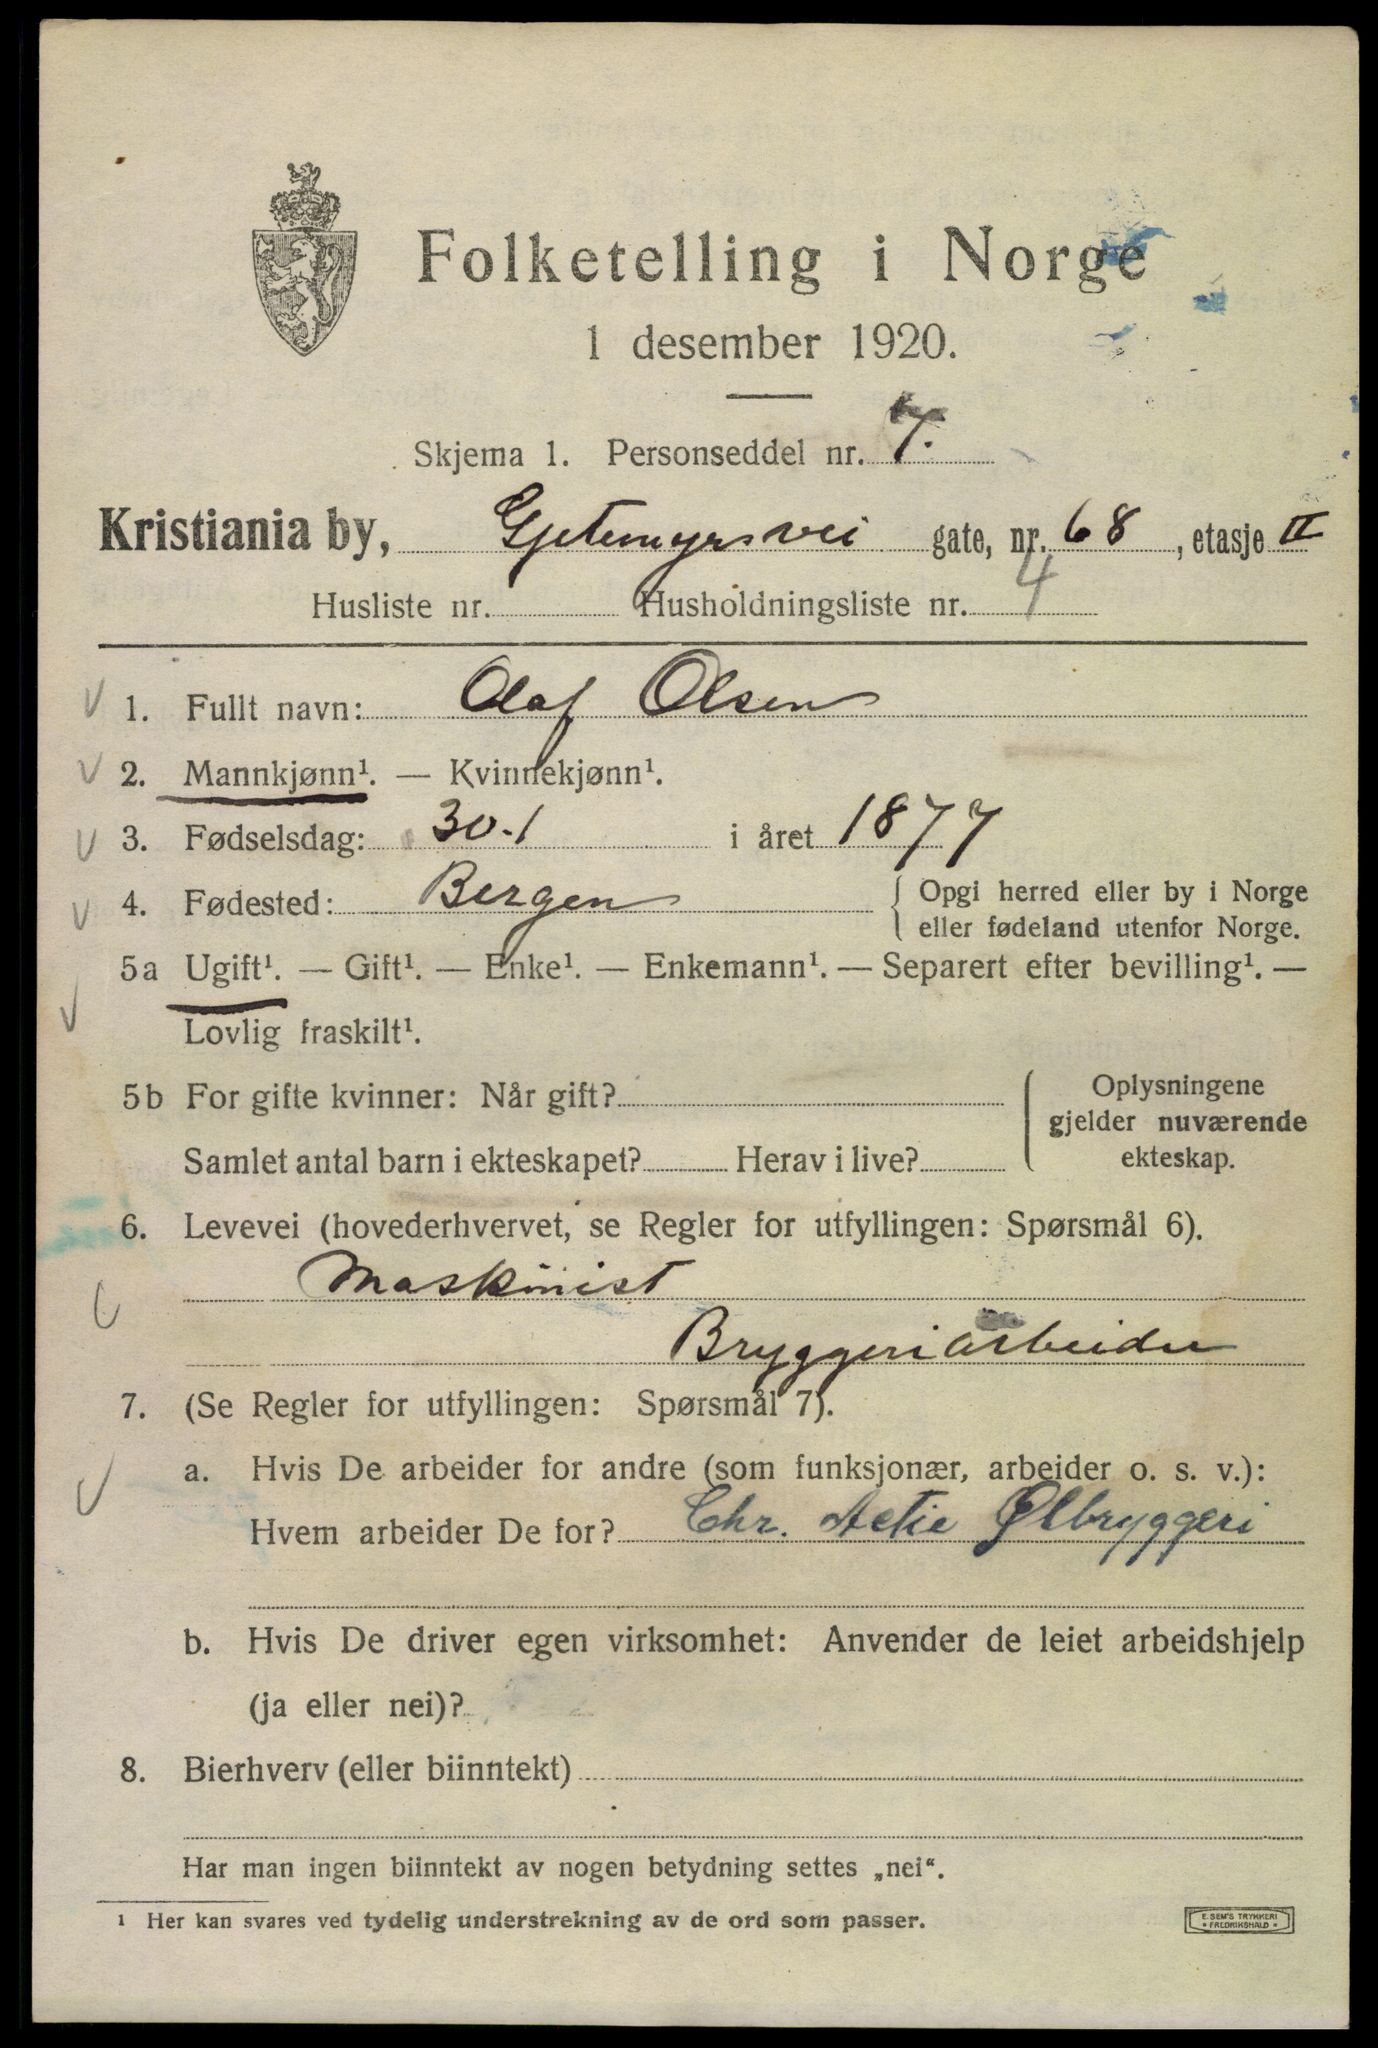 Folketelling i Norge
1 desember 1920.
Skjema 1. Personseddel nr. 7.
Kristiania by, Gjetemyrsvei gate, nr. 68, etasje II
Husliste nr. Husholdningsliste nr. 4
1. Fullt navn: Olaf Olsen
2. Mannkjønn¹. — Kvinnekjønn¹.
3. Fødselsdag: 30.1 i året 1877
4. Fødested: Bergen { Opgi herred eller by i Norge
eller fødeland utenfor Norge.
5a Ugift¹. — Gift¹. — Enke¹. — Enkemann¹. — Separert efter bevilling¹. —
Lovlig fraskilt¹.
5b For gifte kvinner: Når gift? { Oplysningene
gjelder nuværende
Samlet antal barn i ekteskapet? Herav i live? ekteskap.
6. Levevei (hovederhvervet, se Regler for utfyllingen: Spørsmål 6).
Maskinist
Bryggeriarbeider
7. (Se Regler for utfyllingen: Spørsmål 7).
a. Hvis De arbeider for andre (som funksjonær, arbeider o. s. v.):
Hvem arbeider De for? Chr. Actie Ølbryggeri
b. Hvis De driver egen virksomhet: Anvender de leiet arbeidshjelp
(ja eller nei)?
8. Bierhverv (eller biinntekt)
Har man ingen biinntekt av nogen betydning settes „nei“.
¹ Her kan svares ved tydelig understrekning av de ord som passer.
E. SEM'S TRYKKERI
* FREDRIKSHALD *